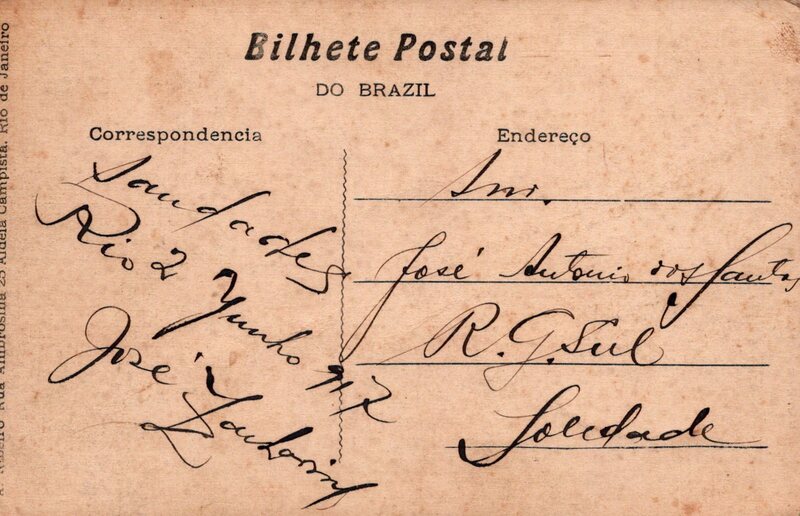 Bilhete Postal
DO BRAZIL
Correspondencia
Saudades
Rio 2 Junho 917
José
Endereço
Snr.
José Antonio dos Santos
R. G. Sul
Soledade
A. Ribeiro Rua Ambrosina 25 Aldeia Campista. Rio de Janeiro